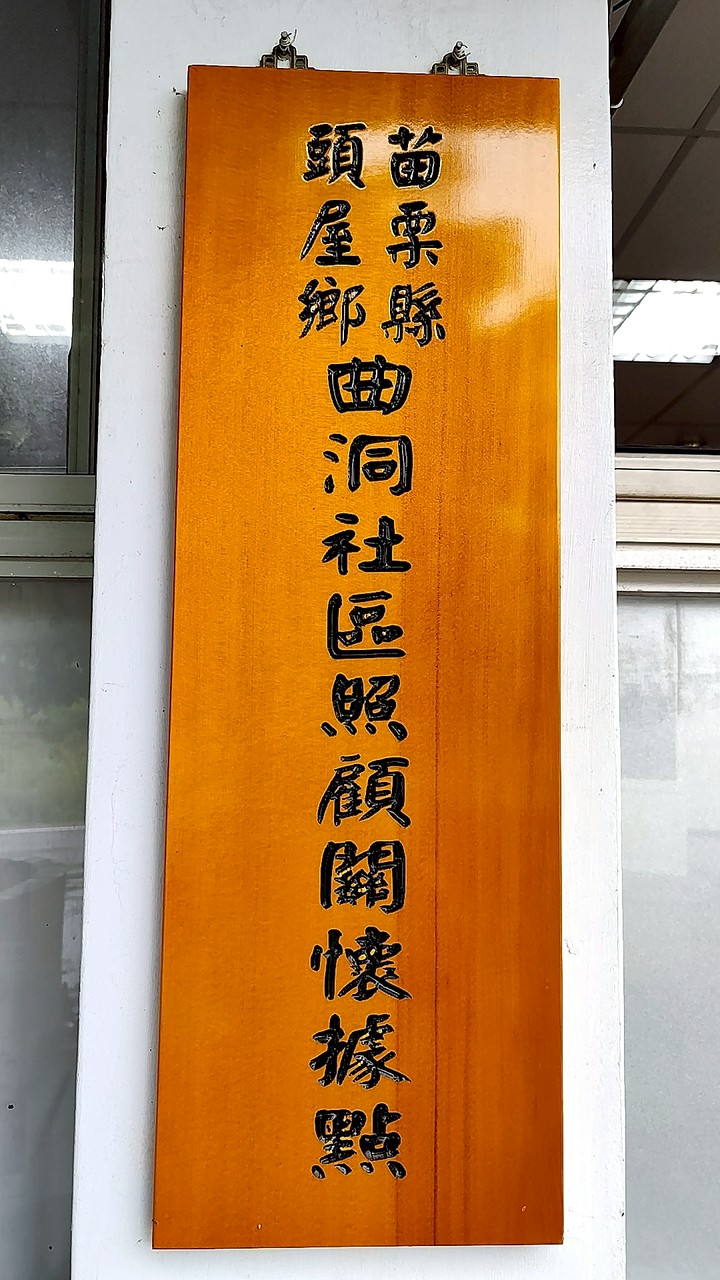 苗栗縣
頭屋鄉
曲洞社區照顧關懷據點